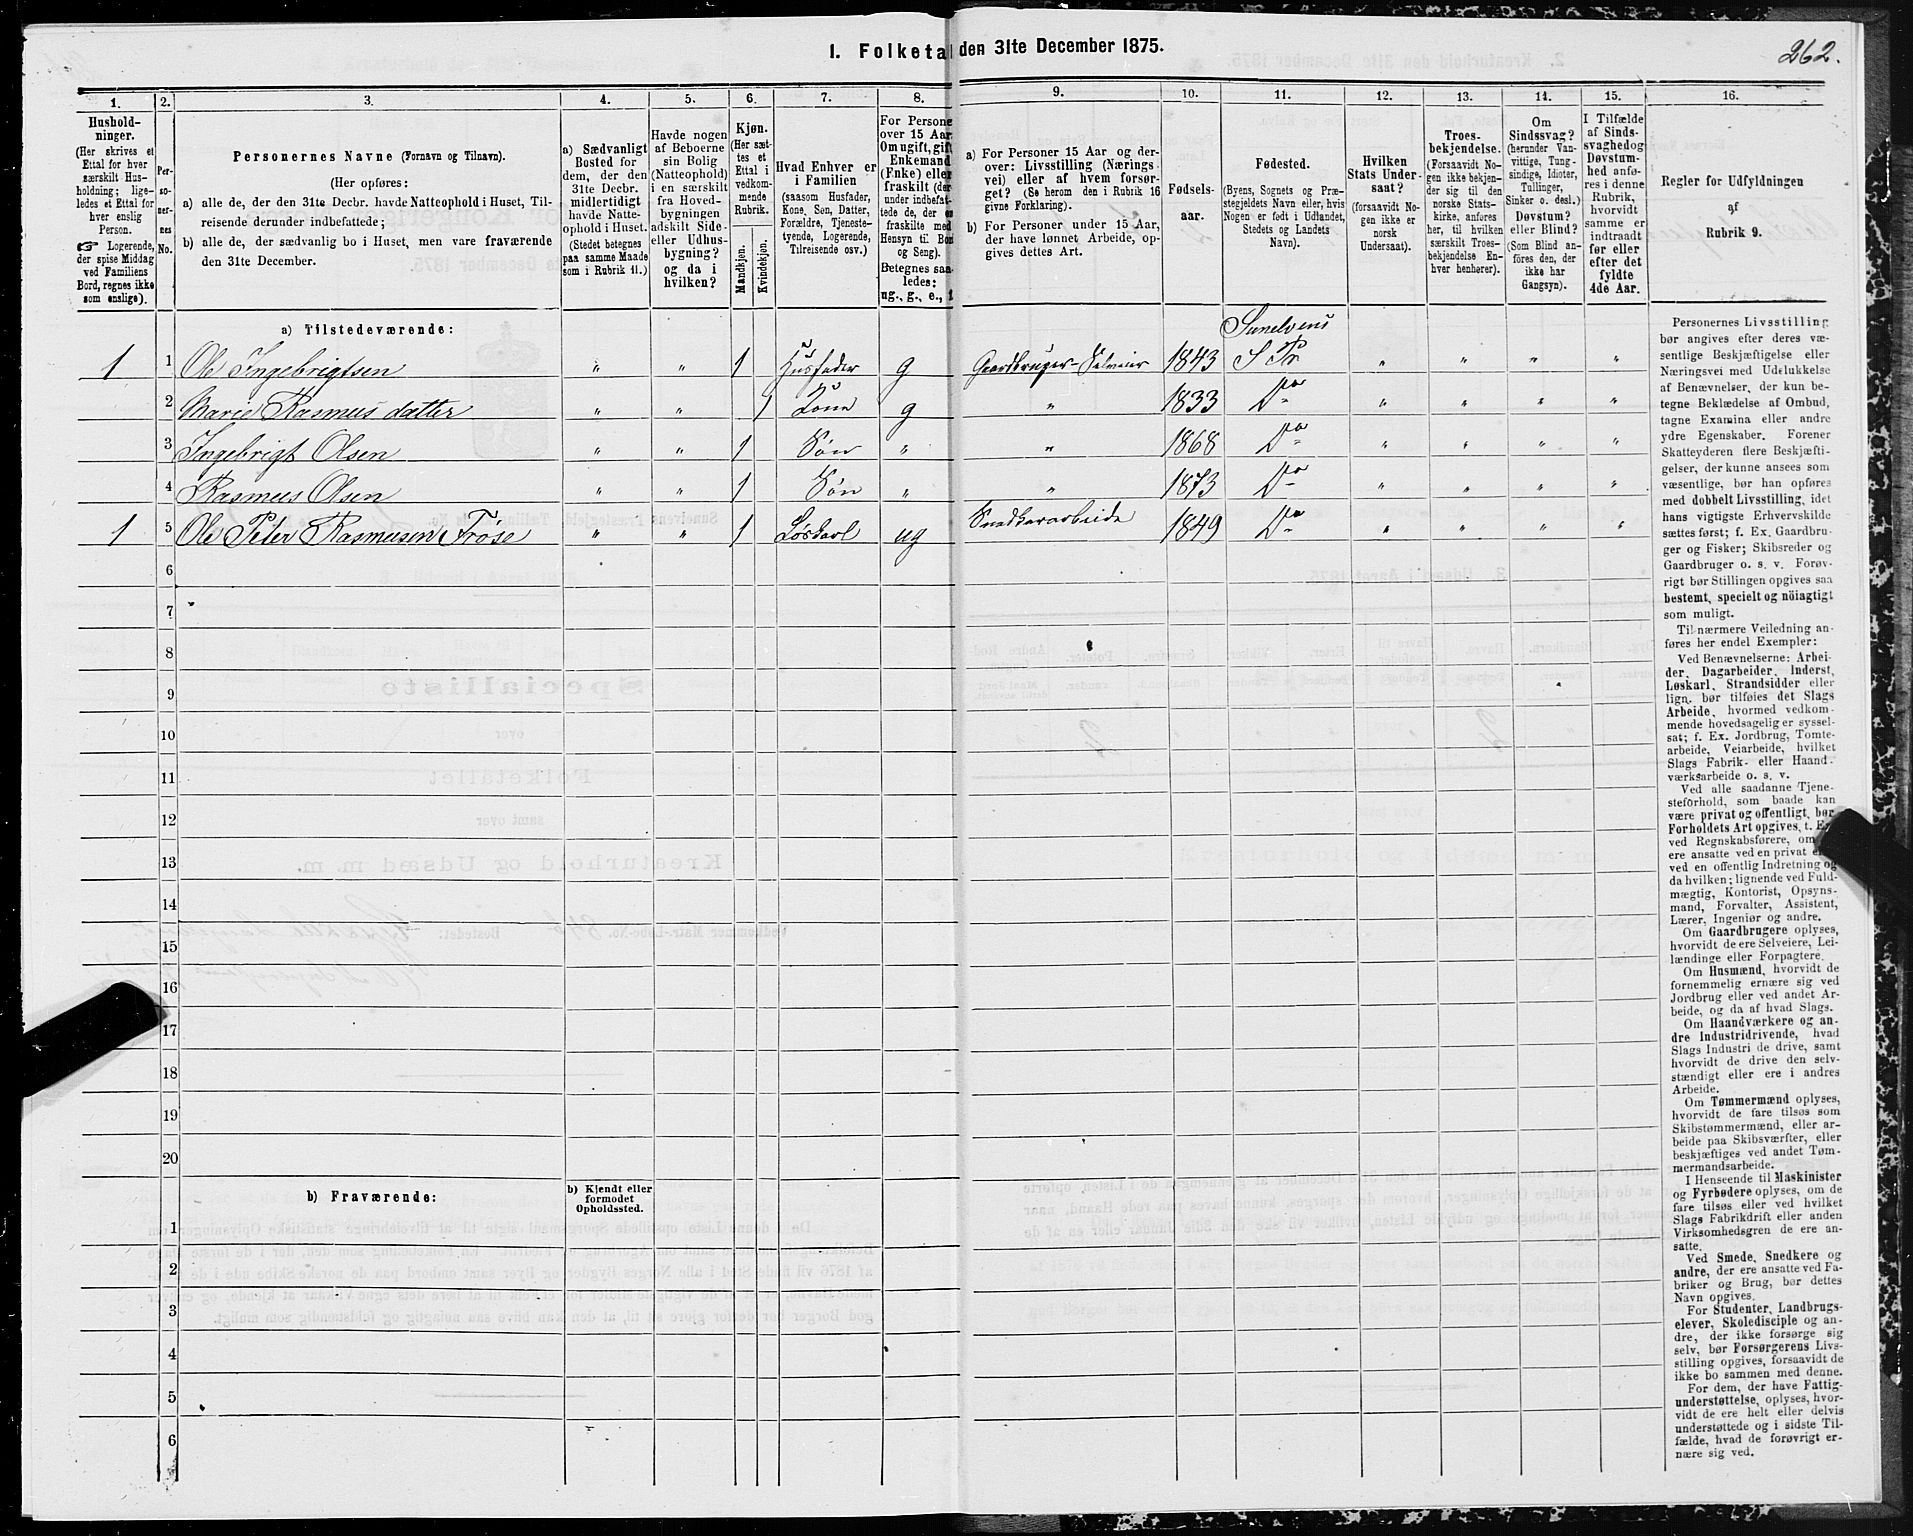 1. Folketal den 31te December 1875.
262.
1.
2.
3.
4.
5.
6.
7.
8.
9.
10.
11.
12.
13.
14.
15.
16.
Hushold-
ninger.
(Her skrives et
Ettal for hver
særskilt Hus-
holdning; lige-
ledes et Ettal for
hver enslig
Person.
☞ Logerende,
der spise Middag
ved Familiens
Bord, regnes ikke
som enslige).
Per-
so-
ner-
nes
No.
Personernes Navne (Fornavn og Tilnavn).
(Her opføres:
a) alle de, der den 31te Decbr. havde Natteophold i Huset, Til-
reisende derunder indbefattede;
b) alle de, der sædvanlig bo i Huset, men vare fraværende
den 31te December.
a) Sædvanligt
Bosted for
dem, der den
31te Decbr.
midlertidigt
havde Natte-
ophold i Huset.
(Stedet betegnes
paa samme Maade
som i Rubrik 11.)
Havde nogen
af Beboerne
sin Bolig
(Natteophold)
i en særskilt
fra Hoved-
bygningen
adskilt Side-
eller Udhus-
bygning?
og da i
hvilken?
Kjøn.
(Her sæt-
tes et
Ettal i
vedkom-
mende
Rubrik.
Mandkjøn.
Kvindekjøn.
Hvad Enhver er
i Familien
(saasom Husfader,
Kone, Søn, Datter,
Forældre, Tjeneste-
tyende, Logerende,
Tilreisende osv.)
For Persone
over 15 Aar
Om ugift, gift
Enkemand
(Enke) eller
fraskilt (der
under indbefat-
tede de, der er
fraskilte med
Hensyn til Bord
og Seng).
Betegnes saa
ledes:
ug., g., e., f
a) For Personer 15 Aar og der-
over: Livsstilling (Nærings-
vei) eller af hvem forsør-
get? (Se herom den i Rubrik 16
givne Forklaring).
b) For Personer under 15 Aar,
der have lønnet Arbeide, op-
gives dettes Art.
Fødsels-
aar.
Fødested.
(Byens, Sognets og Præ-
stegjeldets Navn eller, hvis
Nogen er født i Udlandet,
Stedets og Landets
Navn).
Hvilken
Stats Under-
saat?
(forsaavidt No-
gen ikke er
norsk
Undersaat).
Troes-
bekjendelse.
(Forsaavidt No-
gen ikke bekjen-
der sig til den
norske Stats-
kirke, anføres
her, til hvilken
særskilt Troes-
bekjendelse En-
hver henhører).
Om
Sindssvag?
(herunder Van-
vittige, Tung-
sindige, Idioter,
Tullinger,
Sinker o. desl.)
Døvstum?
eller Blind?
(Som Blind an-
føres den, der
ikke har
Gangsyn).
I Tilfælde
af Sinds-
svaghed og
Døvstum-
hed anfø-
res i denne
Rubrik,
hvorvidt
samme er
indtraadt
før eller
efter det
fyldte
4de Aar.
Regler for Udfyldningen
af
Rubrik 9.
a) Tilstedeværende:
Sunelvens
1 1 Ole Ingebrigtsen " " 1 Husfader g Gaardbruger-Selveier 1843 S Pr " " " "
2 Marie Rasmus datter " " 1 Kone g " 1833 Do " " " "
3 Ingebrigt Olsen " " 1 Søn " " 1868 Do " " " "
4 Rasmus Olsen " " 1 Søn " " 1873 Do " " " "
1 5 Ole Peter Rasmusen Frøse " " 1 Løskarl ug Snedkerarbeide 1849 Do " " " "
6
7
8
9
10
11
12
13
14
15
16
17
18
19
20
b) Fraværende:
b) Kjendt eller
formodet
Opholdssted.
1
2
3
4
5
6
Personernes Livsstilling
bør angives efter deres væ-
sentlige Beskjæftigelse eller
Næringsvei med Udelukkelse
af Benævnelser, der kun be-
tegne Beklædelse af Ombud,
tagne Examina eller andre
ydre Egenskaber. Forener
Skatteyderen flere Beskjæfti-
gelser, der kunne ansees som
væsentlige, bør han opføres
med dobbelt Livsstilling, idet
hans vigtigste Erhvervskilde
sættes først; f. Ex. Gaardbru-
ger og Fisker; Skibsreder og
Gaardbruger o. s. v. Forøv-
rigt bør Stillingen opgives saa
bestemt, specielt og nöiagtigt
som muligt.
Til nærmere Veiledning an-
føres her endel Exempler:
Ved Benævnelserne: Arbei-
der, Dagarbeider, Inderst,
Løskarl, Strandsidder eller
lign. bør tilføies det Slags
Arbeide, hvormed vedkom-
mende hovedsagelig er syssel-
sat; f. Ex. Jordbrug, Tomte-
arbeide, Veiarbeide, hvilket
Slags Fabrik- eller Haand-
værksarbeide o. s. v.
Ved alle saadanne Tjene-
steforhold, som baade kan
være privat og offentligt, bør
Forholdets Art opgives, t. Ex.
ved Regnskabsførere, om
ere ansatte ved en privat el
ved en offentlig Indretning og
da hvilken; lignende ved Fuld-
mægtig, Kontorist, Opsyns-
mand, Forvalter, Assistent,
Lærer, Ingeniør og andre.
Om Gaardbrugere oplyses,
hvorvidt de ere Selveiere, Lei-
lændinge eller Forpagtere.
Om Husmænd, hvorvidt de
fornemmelig ernære sig ved
Jordbrug eller ved andet Ar-
beide, og da af hvad Slags.
Om Haandværkere og an-
dre Industridrivende, hvad
Slags Industri de drive, samt
hvorvidt de drive den selv-
stændigt eller ere i andres
Arbeide.
Om Tømmermænd oplyses,
hvorvidt de fare tilsøs som
Skibstømmermænd, eller ar-
beide paa Skibsværfter, eller
beskjæftiges ved andet Tøm-
mermandsarbeide.
I Henseende til Maskinister
og Fyrbødere oplyses, om de
fare tilsøs eller ved hvilket
Slags Fabrikdrift eller anden
Virksomhedsgren de ere an-
satte.
Ved Smede, Snedkere og
andre, der ere ansatte ved Fa-
briker og Brug, bør dettes
Navn opgives.
For Studenter, Landbrugs-
elever, Skoledisciple og an-
dre, der ikke forsørge sig
selv, bør Forsørgerens Livs-
stilling opgives, forsaavidt de
ikke bo sammen med denne.
For dem, der have Fattig-
understøttelse, oplyses, hvor-
vidt de ere helt eller delvis
understøttede og i sidste Til-
fælde, hvad de forøvrigt er-
nære sig ved.